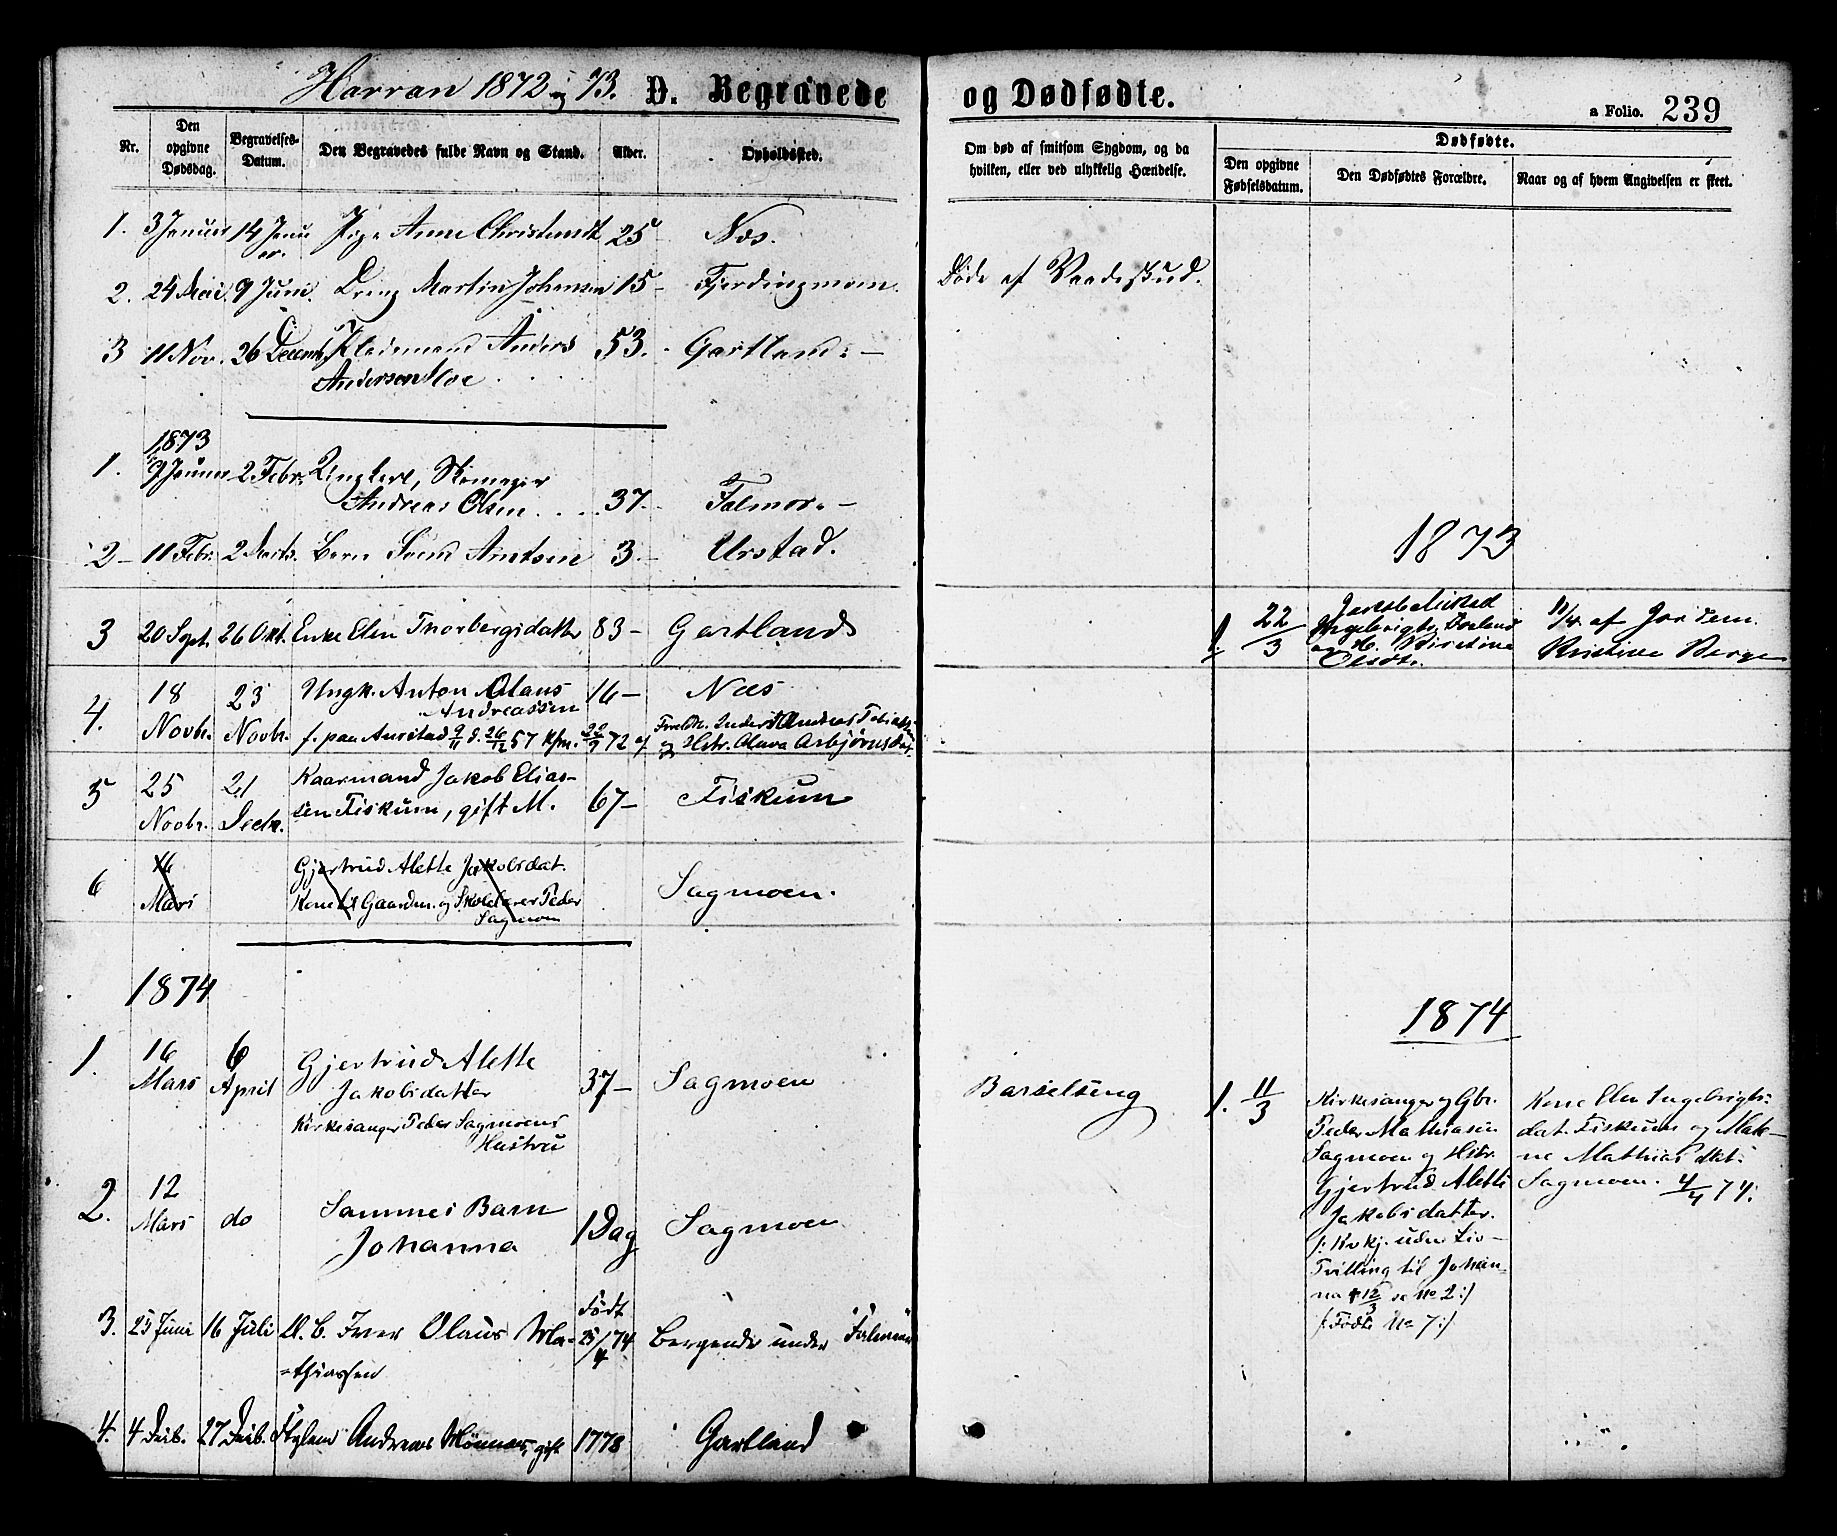 Harran 1872 og 73. D. Begravede og Dødfødte.
a Folio. 239
Nr.
Den opgivne Dødsdag.
Begravelses-Datum.
Den Begravedes fulde Navn og Stand.
Alder.
Opholdssted.
Om død af smitsom Sygdom, og da hvilken, eller ved ulykkelig Hændelse.
Dødfødte.
Den opgivne Fødselsdatum.
Den Dødfødtes Forældre.
Naar og af hvem Angivelsen er skeet.
1. 3 Januar 14 Janu Pige Anne 25 Næs.
ar.
2. 24 Mai 9 Juni. Dreng Martin Johnsen 15 - Fjerdingmoen. Døde af Vaadeskud.
3 11 Nov. 26 Decemb. Anders 53. Gartland -
Andersen Moe
1873
1. 9 Januar 2 Febr. Ungkarl, Skomager
Andreas Olsen 37. Falmor -
2 - 11 Febr. 2 Marts. Barn Arntsen 3. - Urstad.
1873
3 20 Sept. 26 Okt. Enke Elen Thorbergsdatter 83 - Gartland
1. 22/3
og H. Kirstine
Olsdt.
af Jordem.
Kristine Berge
4. 18 Novbr. 23 Novbr. Ungk. Anton Olaus 16 - Næs
Andreassen
f. paa Aunstad 9/11 d. 26/12 57 Kfm. 72 af
og Hstr. Olava Asbjørnsdat.
5 25 Novbr. 21 Decbr. Kaarmand Jakob Elias-
sen Fiskum, gift M. 67 - Fiskum
6 16 Mars Gjertrud Alette Jakobsdat. Sagmoen.
Kone til Gaardm. og Skolelærer Peder
Sagmoen
1874
1874
1. 16 Mars 6 April Gjertrud Alette
Jakobsdatter 37 - Sagmoen Barselseng
Kirkesanger Peder Sagmoens
Hustru
1. 11/3
Kirkesanger og Gbr.
Peder Mathiasen
Sagmoen og Hstr.
Gjertrud Alette
Jakobsdatter.
Tvilling til Johan-
na 12/3 se No 2:/
/: Fødte No 7:/
Kone Elen Ingebrigts-
dat. Fiskum og Male-
ne Mathiasdat.
Sagmoen. 4/4 74.
2. 12 Mars do Sammes Barn
Johanna 1 Dag Sagmoen
3. 25 Juni 16 Juli U. b. Iver Olaus Ma-
=thiassen Født 25/4 74 Bergende under Falmor
4. 4 Decb. 27 Decb. Andreas gift 1778 Gartland